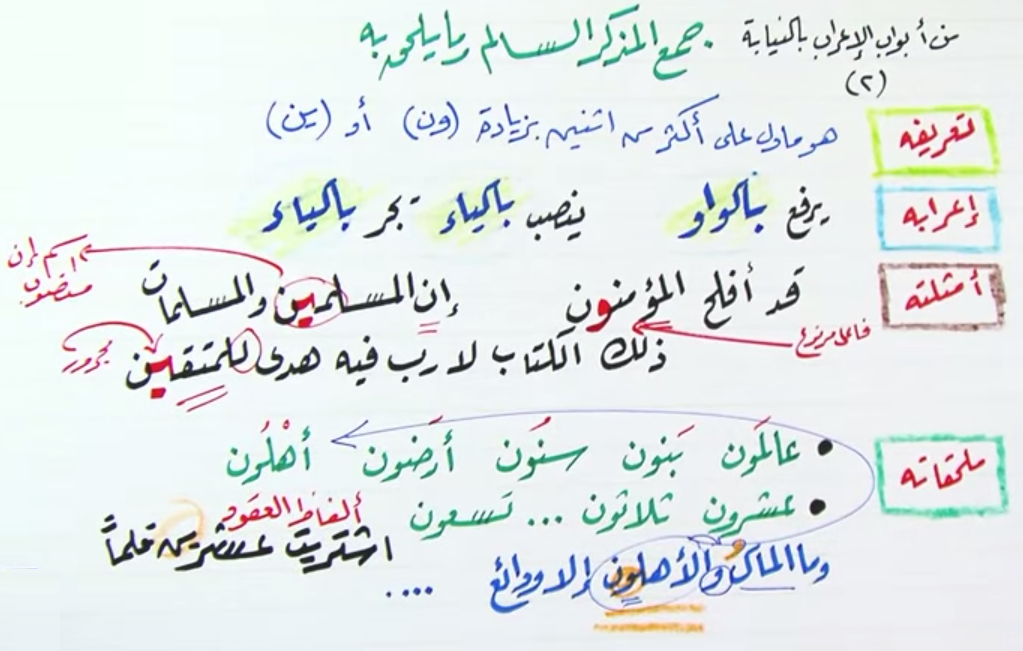 من أبواب الإعراب بالنيابة
(٢)
جمع المذكر السالم وما يلحق به
تعريفه
هو ما دل على أكثر من اثنين بزيادة (ون) أو (ين)
إعرابه
يرفع بالواو ينصب بالياء يجر بالياء
أمثلته
قد أفلح المؤمنون إن المسلمين والمسلمات
فاعل مرفوع
اسم إن منصوب
ذلك الكتاب لا رب فيه هدى للمتقين
مجرور
ملحقاته
• عالَمون بَنون سنُون أرَضون أهْلُون
• عشرون ثلاثون ... تسعون ألفاظ العقود
اشتريت عشرين قلماً
وما المالُ والأهلون إلا ودائع ....